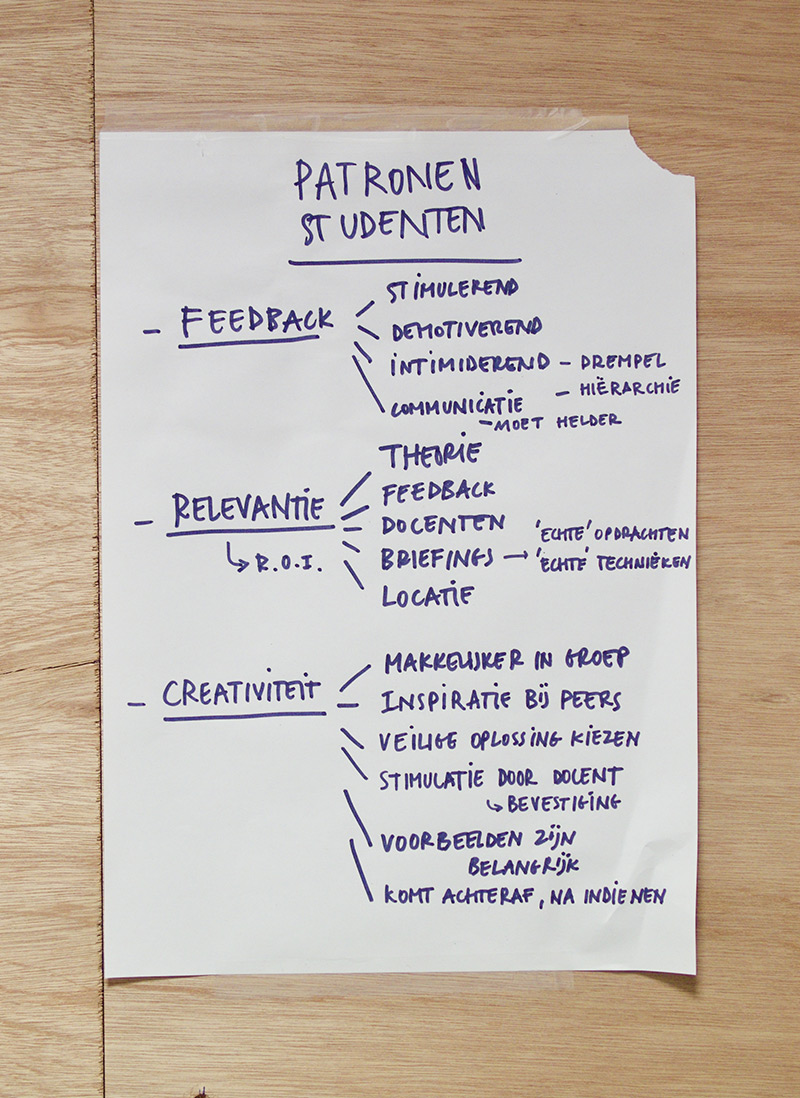 PATRONEN
STUDENTEN
- FEEDBACK
STIMULEREND
DEMOTIVEREND
INTIMIDEREND - DREMPEL
- HIËRARCHIE
COMMUNICATIE
- MOET HELDER
- RELEVANTIE
↳ R.O.I.
THEORIE
FEEDBACK
DOCENTEN
BRIEFINGS → 'ECHTE' OPDRACHTEN
'ECHTE' TECHNIËKEN
LOCATIE
- CREATIVITEIT
MAKKELIJKER IN GROEP
INSPIRATIE BIJ PEERS
VEILIGE OPLOSSING KIEZEN
STIMULATIE DOOR DOCENT
↳ BEVESTIGING
VOORBEELDEN ZIJN
BELANGRIJK
KOMT ACHTERAF, NA INDIENEN